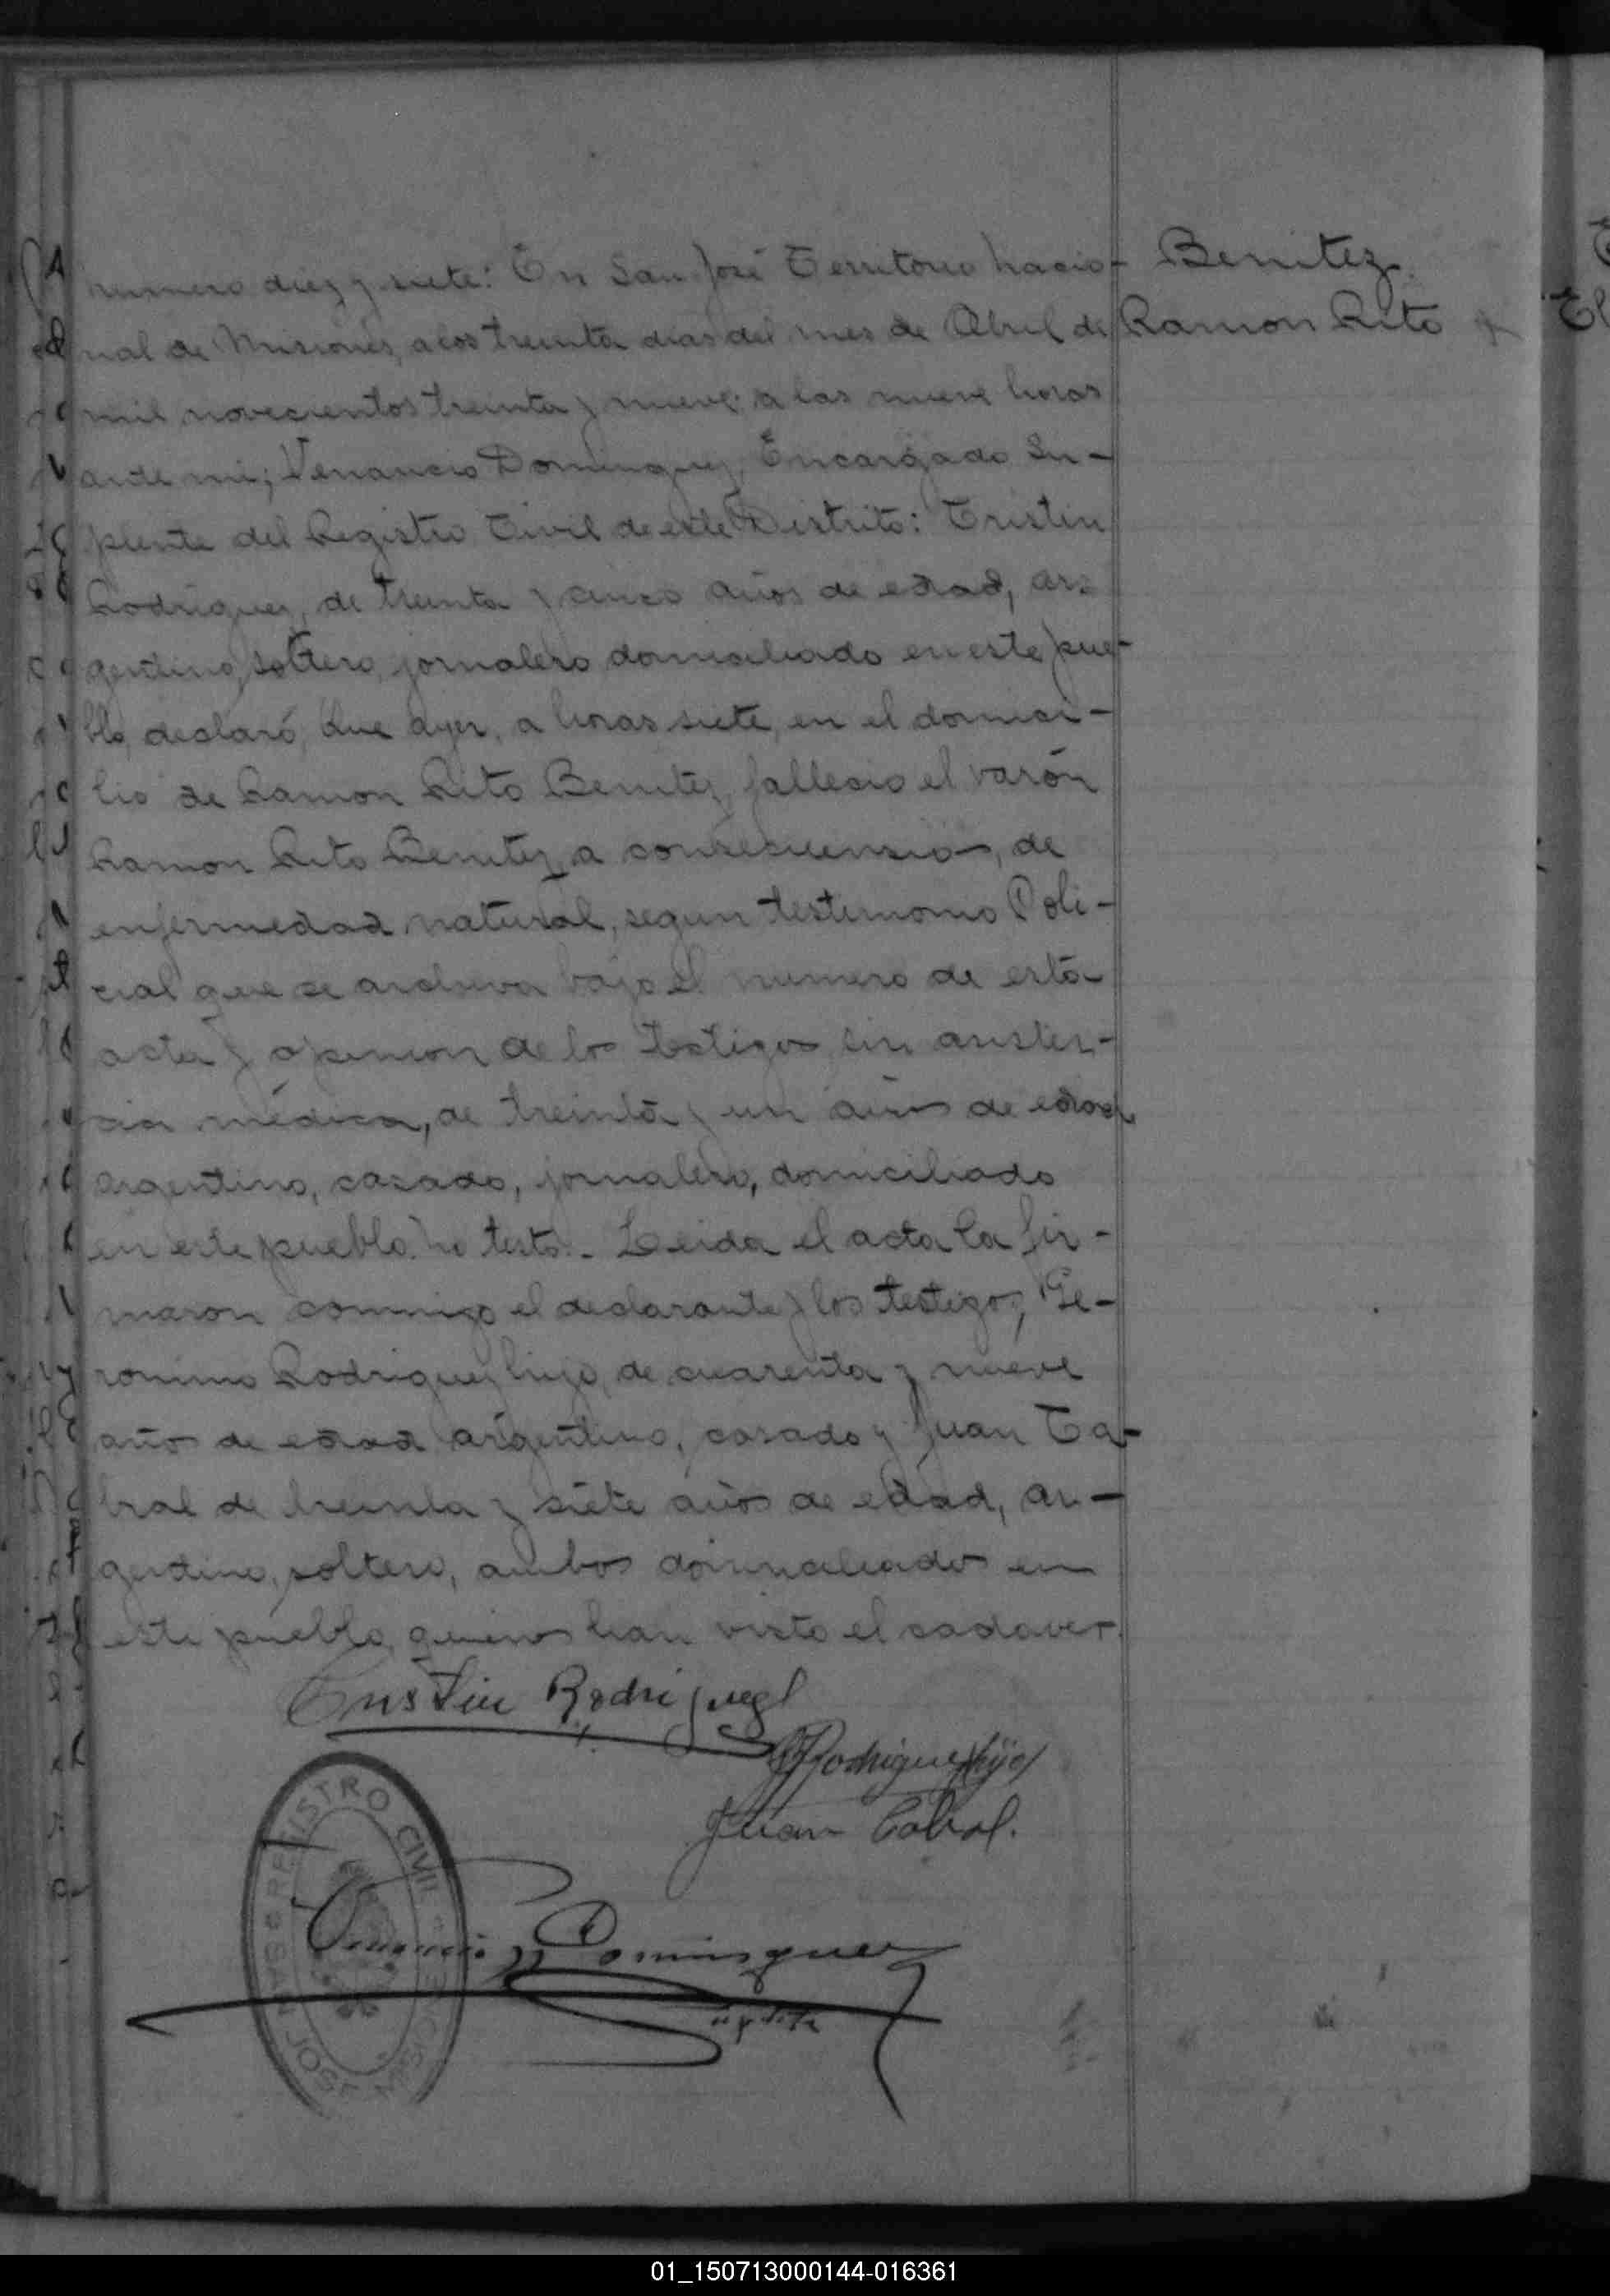 Benitez
Ramon Rito
numero diez y siete: En San José Territorio nacio-
nal de Misiones, a los treinta dias del mes de Abril de
mil novecientos treinta y nueve; a las nueve horas
ante mi; Venancio Dominguez, Encargado Su-
plente del Registro Civil de este Distrito: Cristin
Rodriguez, de treinta y cinco años de edad, ar-
gentino, soltero, jornalero domiciliado en este pue-
blo, declaró, que ayer, a horas siete, en el domici-
lio de Ramon Rito Benitez, fallecio el varón
Ramon Rito Benitez, a consecuensia, de
enfermedad natural, segun testimonio Poli-
cial que se archiva bajo el numero de esta
acta y opinion de los testigos, sin asisten-
cia médica, de treinta y un años de edad,
argentino, casado, jornalero, domiciliado
en este pueblo. no testo.- Leida el acta la fir-
maron conmigo el declarante y los testigos, Ge-
ronimo Rodriguez hijo, de cuarenta y nueve
años de edad argentino, casado y Juan Ca-
bral de treinta y siete años de edad, ar-
gentino, soltero, ambos domiciliados en
este pueblo, quienes han visto el cadaver.
Cristin Rodriguez
G Rodriguez hijo
Juan Cabral.
REGISTRO CIVIL
SAN JOSE MISIONES
Venancio Dominguez
suplente
01_150713000144-016361